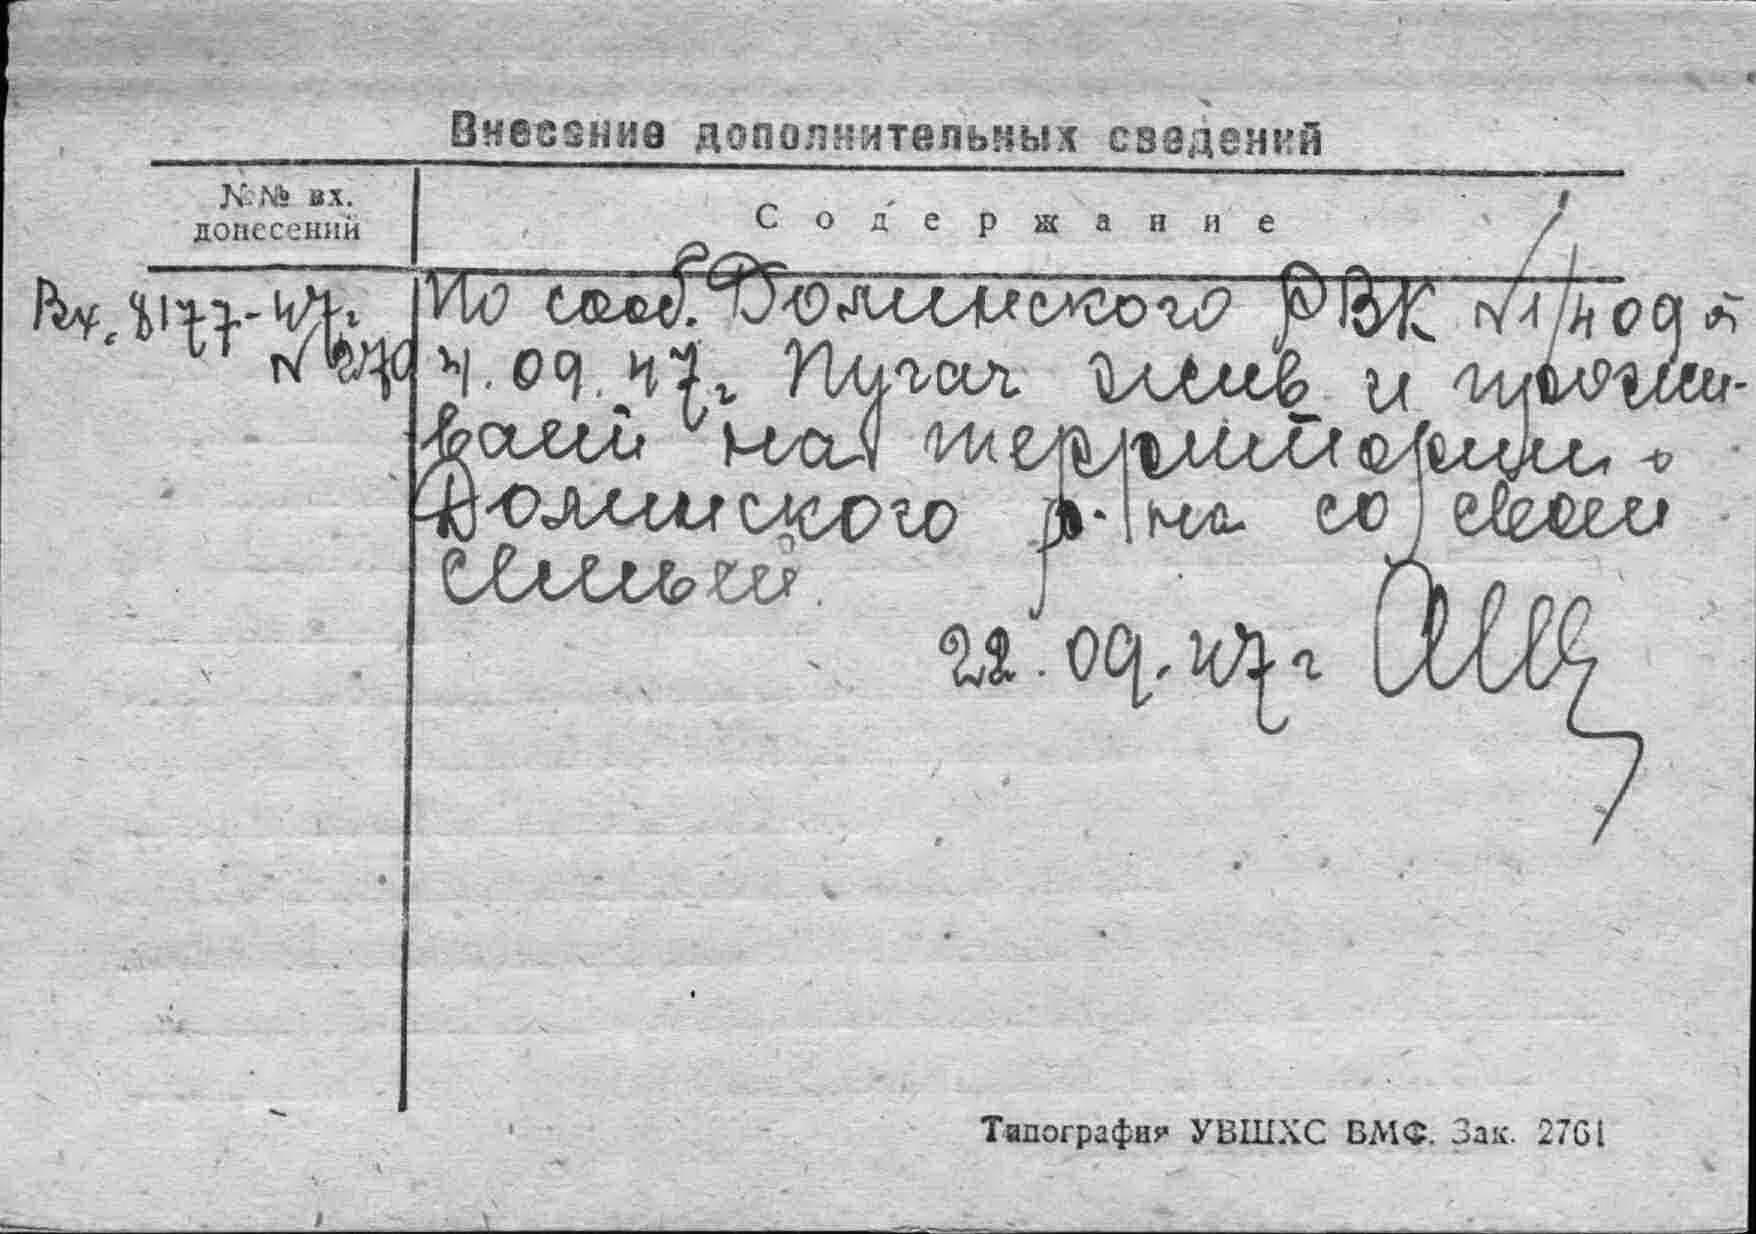 Внесение дополнительных сведений
№№ вх.
донесений
Содержание
Вх. 8177-47г.
№ 270
По сооб. Долинского РВК №1/409 от
4.09.47г. Пугач жив и прожи-
вает на территории
Долинского р-на со своей
семьей.
22.09.47г
Типография УВШХС ВМФ. Зак. 2761